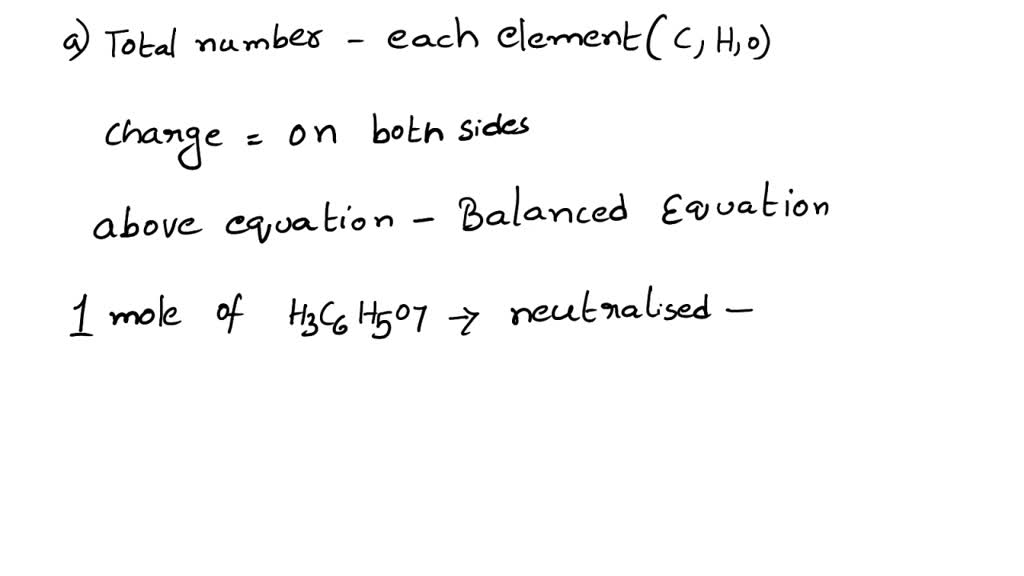 a) Total number - each element (C, H, O)
change = on both sides
above equation - Balanced Equation
1 mole of H3C6H5O7 → neutralised -